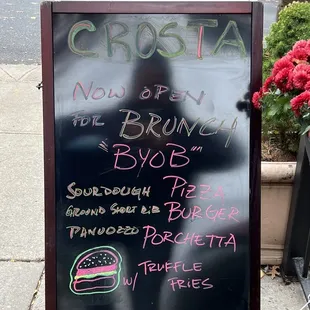 CROSTA
NOW OPEN
FOR BRUNCH
"BYOB"
SOURDOUGH PIZZA
GROUND SHORT RIB BURGER
PANUOZZO PORCHETTA
W/ TRUFFLE
FRIES